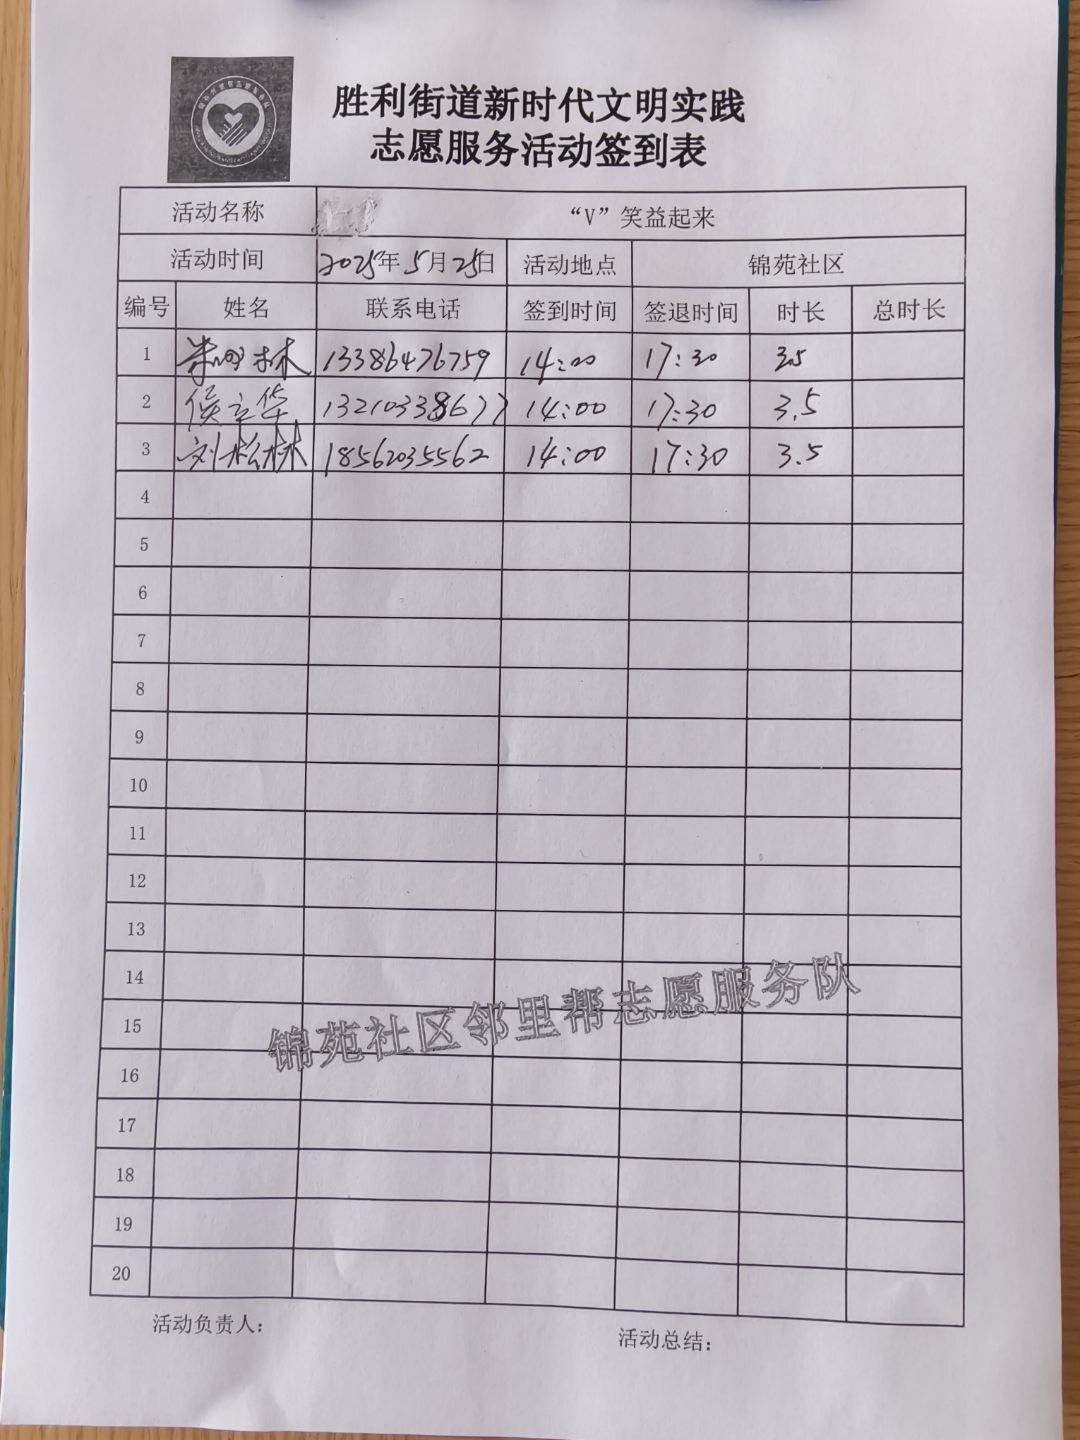 胜利街道新时代文明实践
志愿服务活动签到表
活动名称 “V”笑益起来
活动时间 2025年5月25日 活动地点 锦苑社区
编号 姓名 联系电话 签到时间 签退时间 时长 总时长
1 13386476759 14:00 17:30 3.5
2 侯立华 13210338677 14:00 17:30 3.5
3 刘松林 18562035562 14:00 17:30 3.5
4
5
6
7
8
9
10
11
12
13
14
15
16
17
18
19
20
锦苑社区邻里帮志愿服务队
活动负责人:
活动总结: